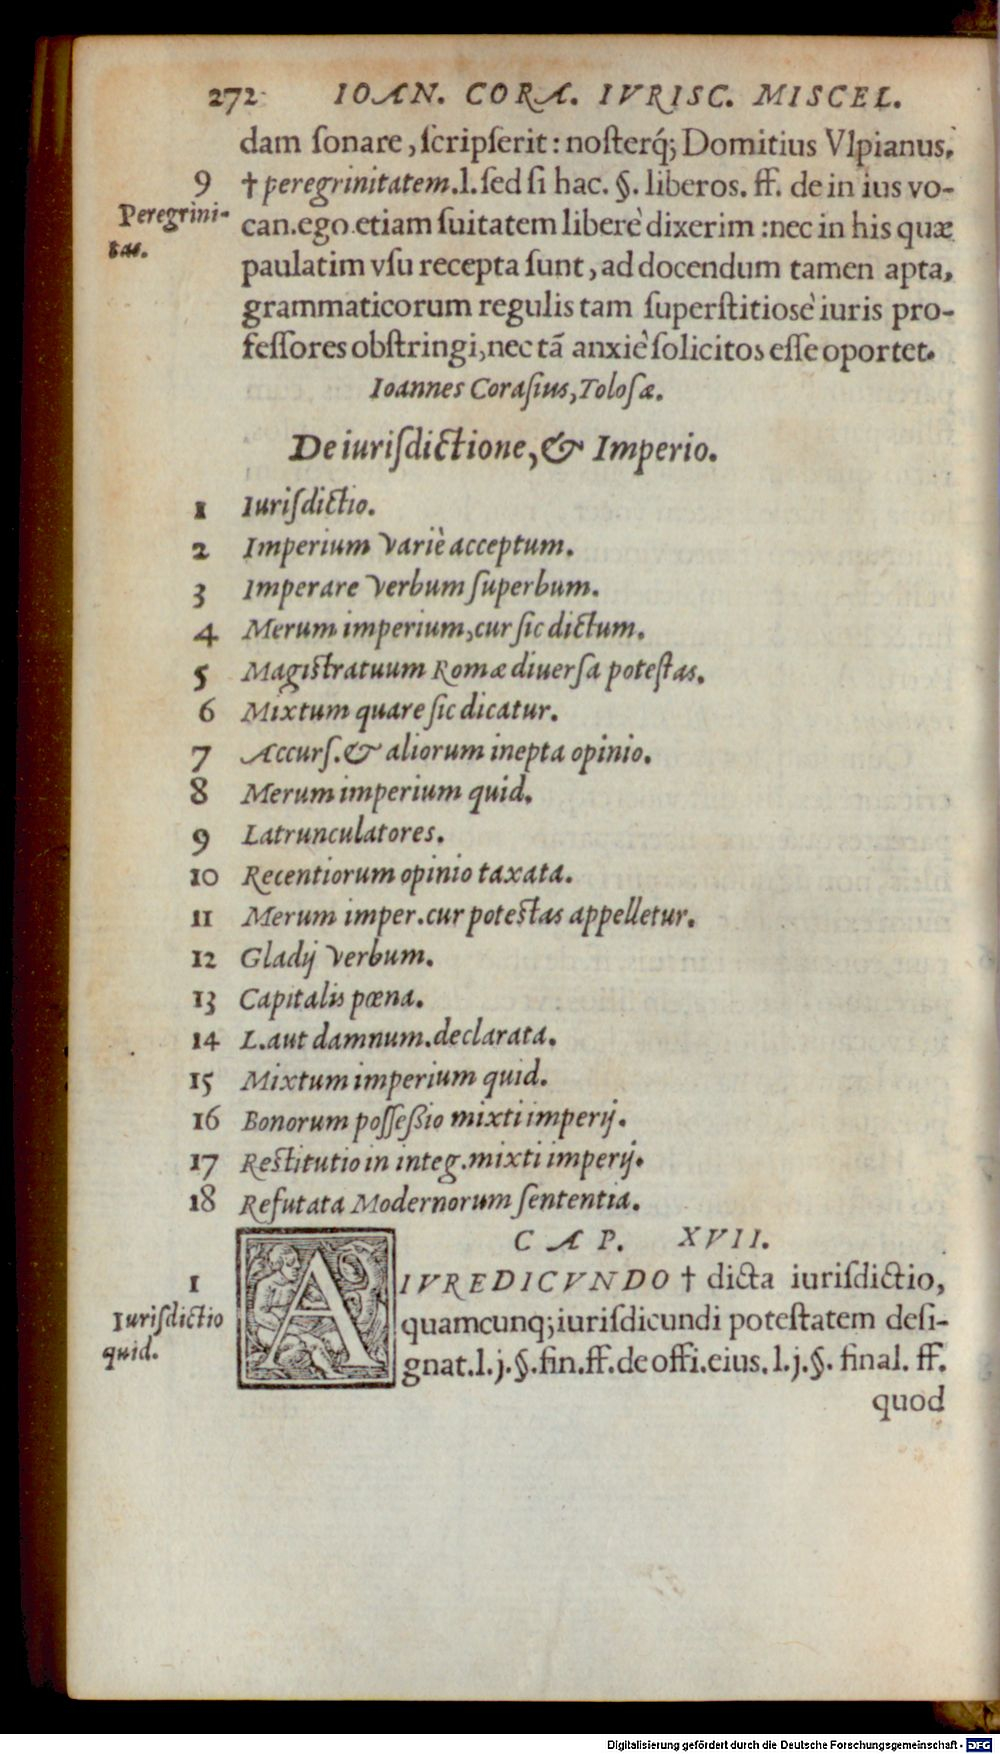 272 IOAN. CORA. IVRISC. MISCEL.
dam ſonare, ſcripſerit: noſterq́; Domitius Vlpianus,
9 † peregrinitatem. l. ſed ſi hac. §. liberos. ff. de in ius vo-
Peregrini-
tas.
can. ego etiam ſuitatem liberè dixerim : nec in his quæ
paulatim vſu recepta ſunt, ad docendum tamen apta,
grammaticorum regulis tam ſuperſtitiosè iuris pro-
feſſores obſtringi, nec tã anxiè ſolicitos eſſe oportet.
Ioannes Coraſius, Toloſæ.
De iuriſdictione, & Imperio.
1 Iuriſdictio.
2 Imperium variè acceptum.
3 Imperare verbum ſuperbum.
4 Merum imperium, cur ſic dictum.
5 Magiſtratuum Romæ diuerſa poteſtas.
6 Mixtum quare ſic dicatur.
7 Accurſ. & aliorum inepta opinio.
8 Merum imperium quid.
9 Latrunculatores.
10 Recentiorum opinio taxata.
11 Merum imper. cur poteſtas appelletur.
12 Gladij verbum.
13 Capitalis pœna.
14 L. aut damnum. declarata.
15 Mixtum imperium quid.
16 Bonorum poſſeßio mixti imperij.
17 Reſtitutio in integ. mixti imperij.
18 Refutata Modernorum ſententia.
CAP. XVII.
1 A IVREDICVNDO † dicta iuriſdictio,
Iuriſdictio
quid.
quamcunq; iuriſdicundi poteſtatem deſi-
gnat. l. j. §. fin. ff. de offi. eius. l. j. §. final. ff.
quod
Digitalisierung gefördert durch die Deutsche Forschungsgemeinschaft - DFG